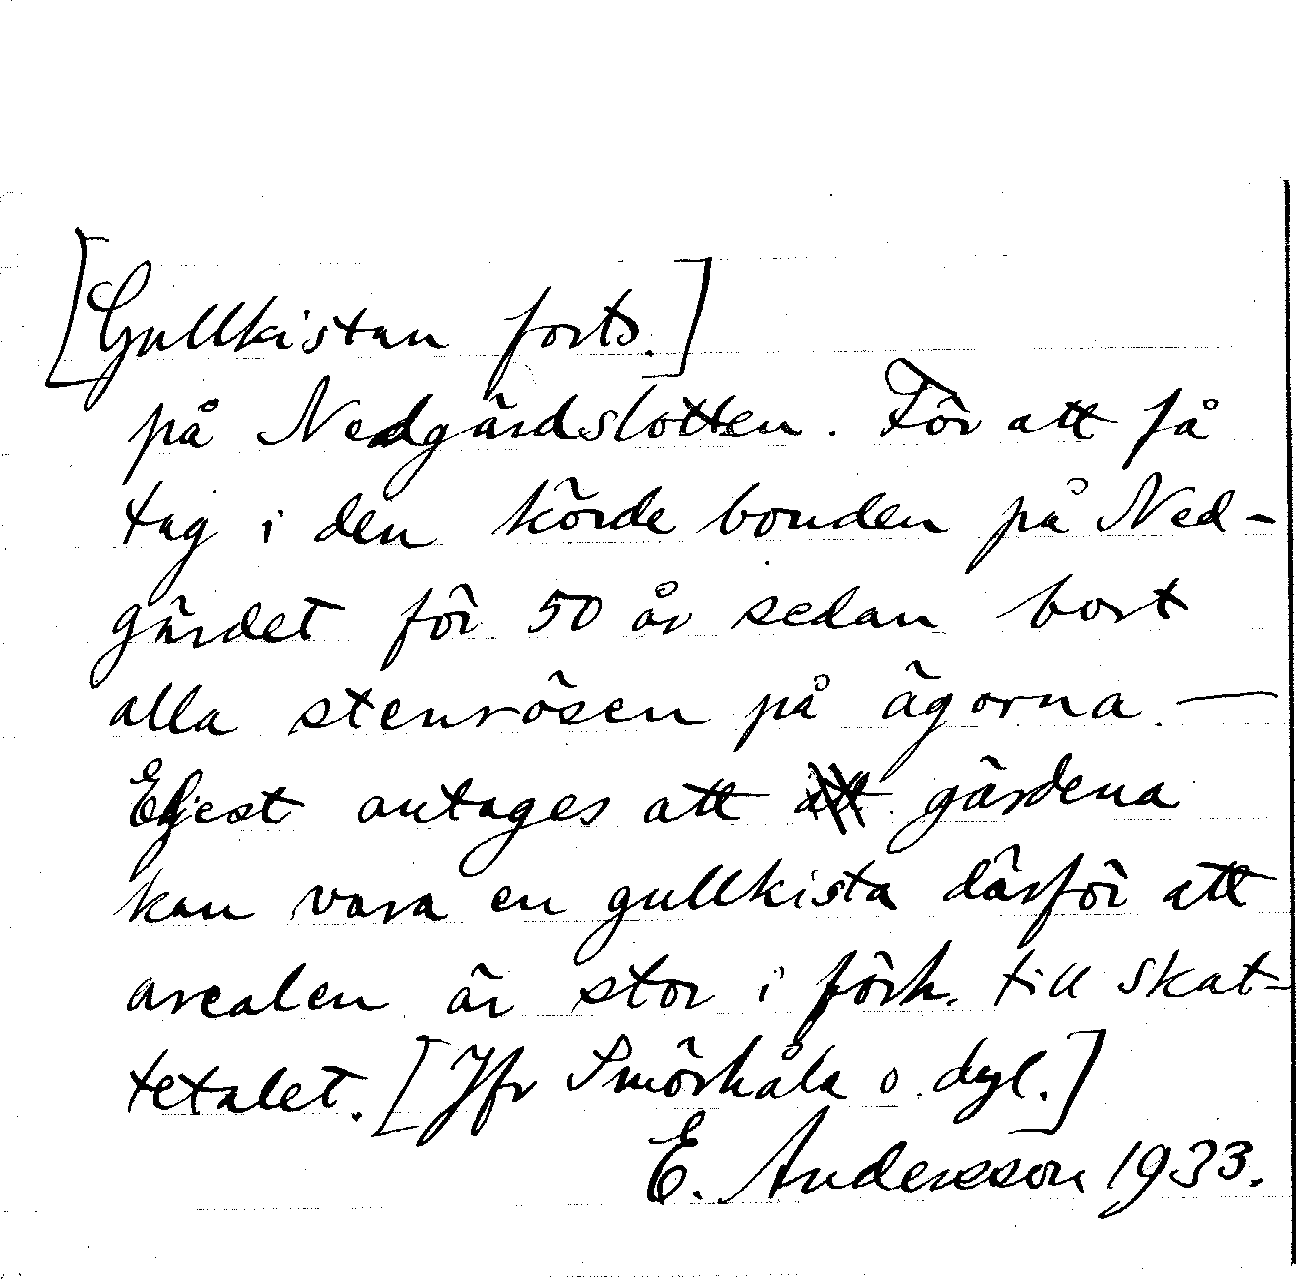 [Gullkistan forts.]
på Nedgärdslotten. För att få
tag i den körde bonden på Ned-
gärdet för 50 år sedan bort
alla stenrösen på ägorna. —
Eljest antages att att gärdena
kan vara en gullkista därför att
arealen är stor i förh. till skat-
tetalet. [Jfr Smörhåla o. dyl.]
E. Andersson 1933.